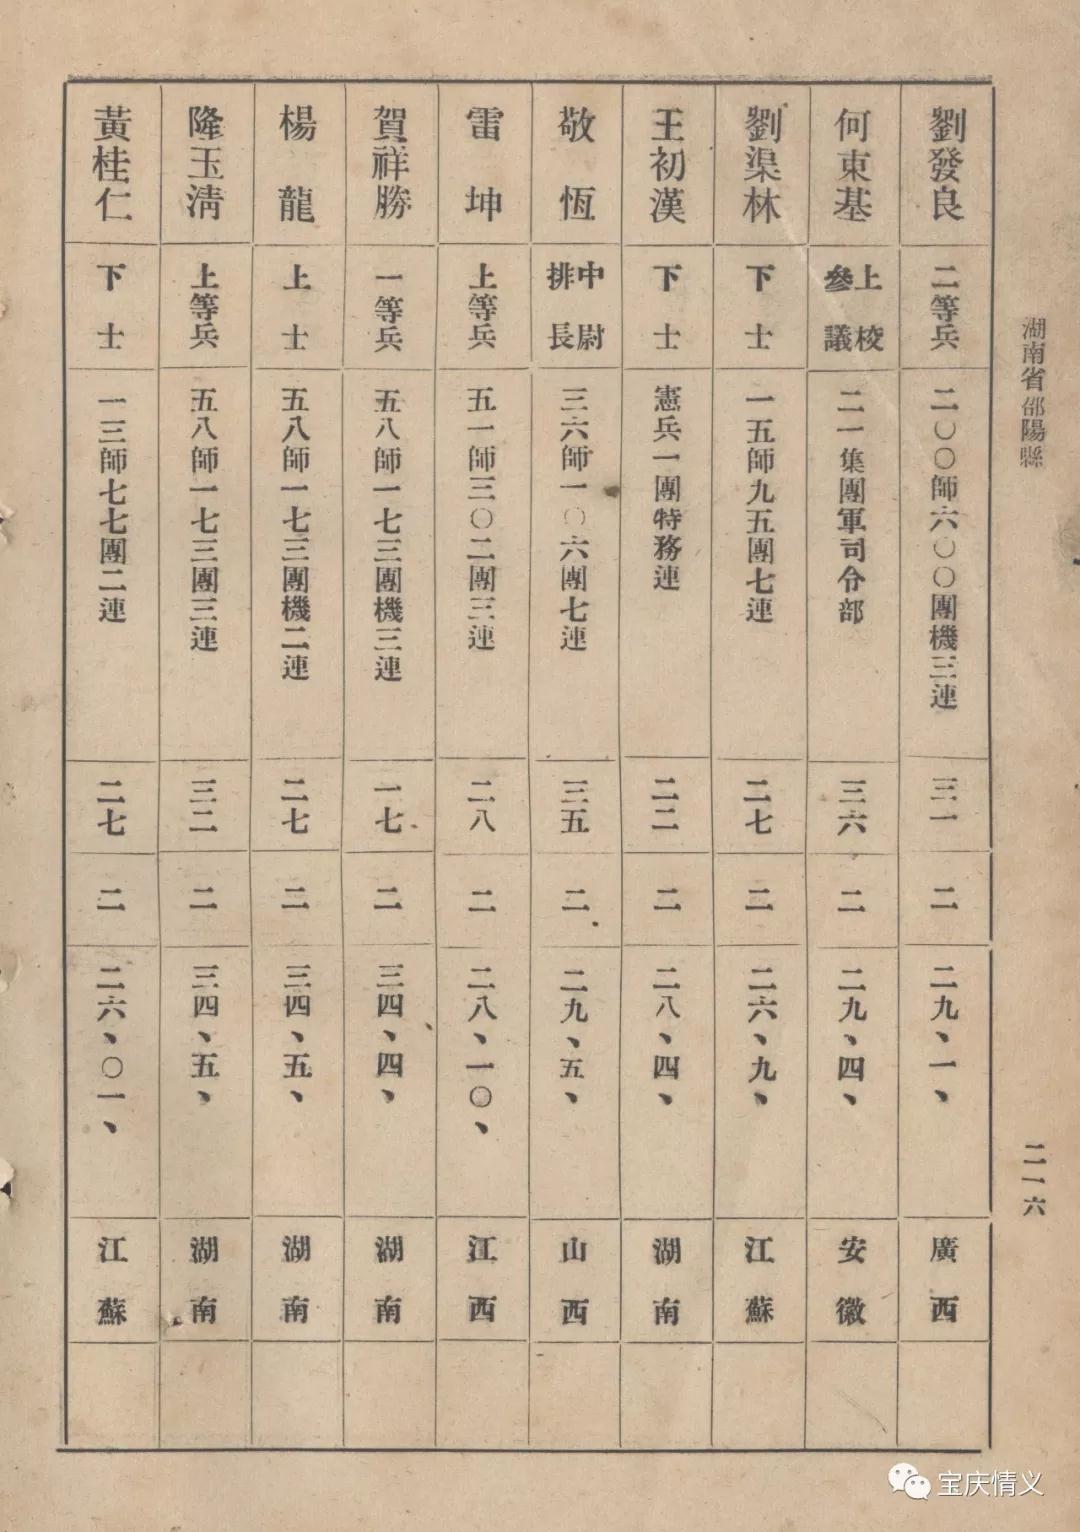 湖南省邵陽縣
二一六
劉發良 二等兵 二〇〇師六〇〇團機三連 三一 二 二九、一、 廣西
何東基 上校參議 二一集團軍司令部 三六 二 二九、四、 安徽
劉渠林 下士 一五師九五團七連 二七 二 二六、九、 江蘇
王初漢 下士 憲兵一團特務連 二二 二 二八、四、 湖南
敬恆 中尉排長 三六師一〇六團七連 三五 二 二九、五、 山西
雷坤 上等兵 五一師三〇二團三連 二八 二 二八、一〇、 江西
賀祥勝 一等兵 五八師一七三團機三連 一七 二 三四、四、 湖南
楊龍 上士 五八師一七三團機二連 二七 二 三四、五、 湖南
隆玉淸 上等兵 五八師一七三團三連 三二 二 三四、五、 湖南
黃桂仁 下士 一三師七七團二連 二七 二 二六、〇一、 江蘇
宝庆情义